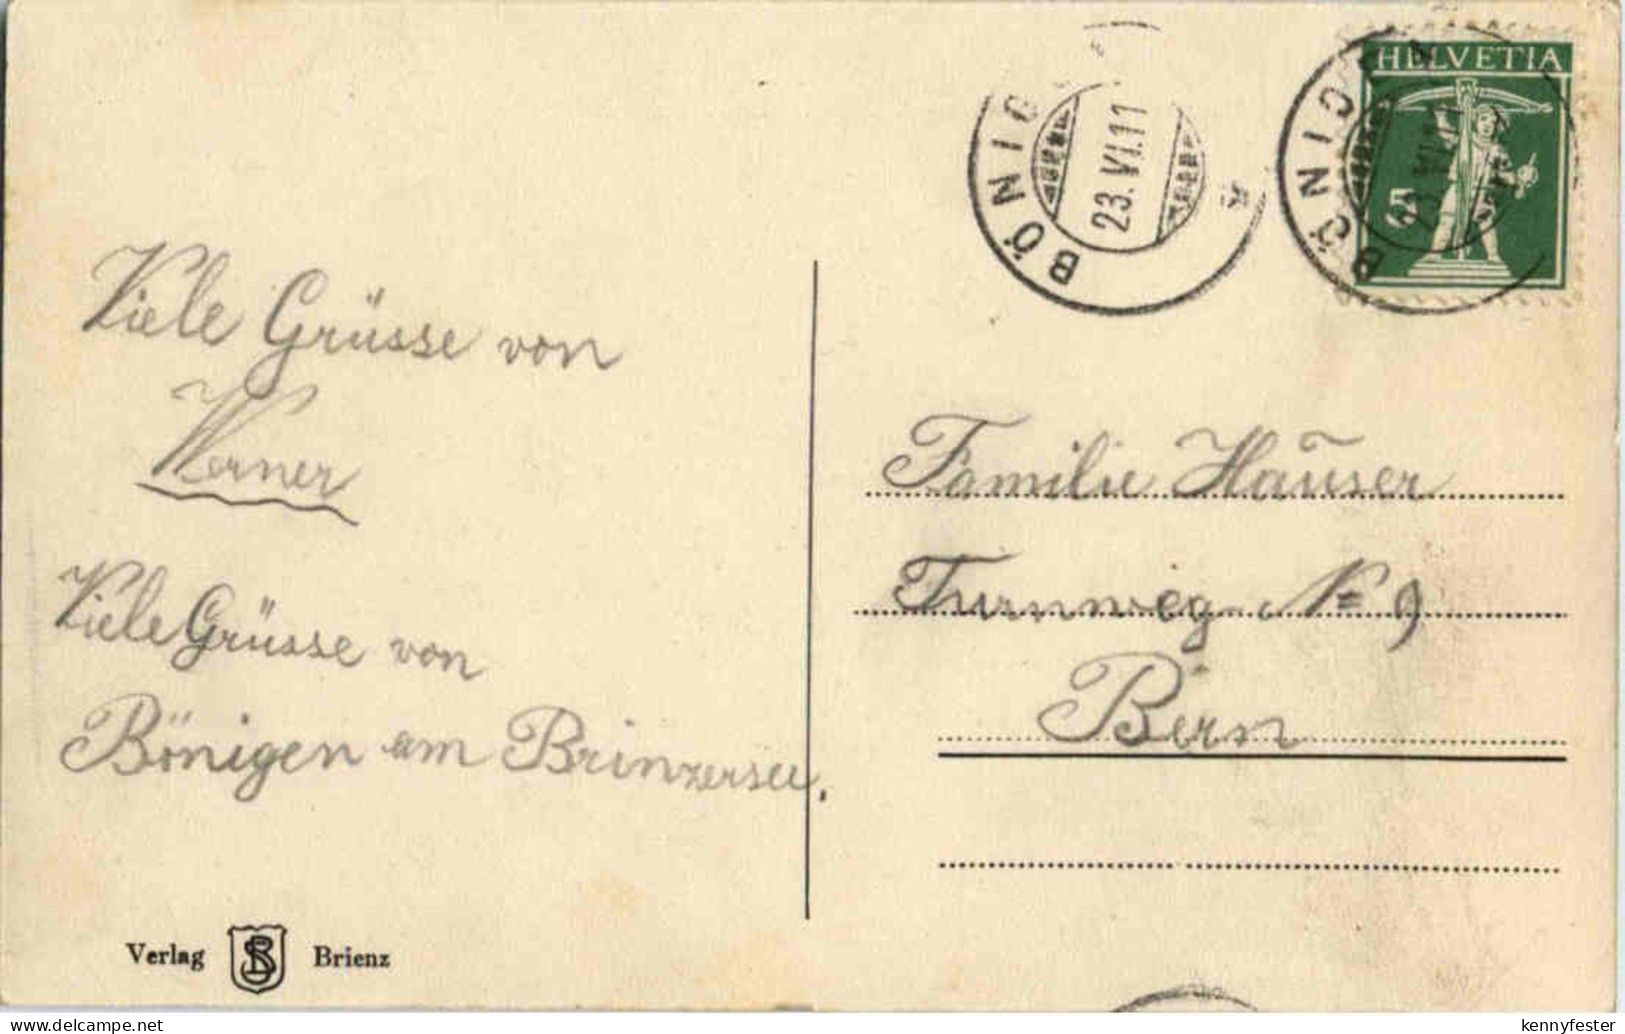 Viele Grüsse von
Werner
Viele Grüsse von
Bönigen am Brinzersee.
Verlag SB Brienz
BÖNIG
23.VI.11
BÖNIGEN
23.VI.
HELVETIA
5
Familie Hauser
Turnweg N= 9
Bern
kennyfester